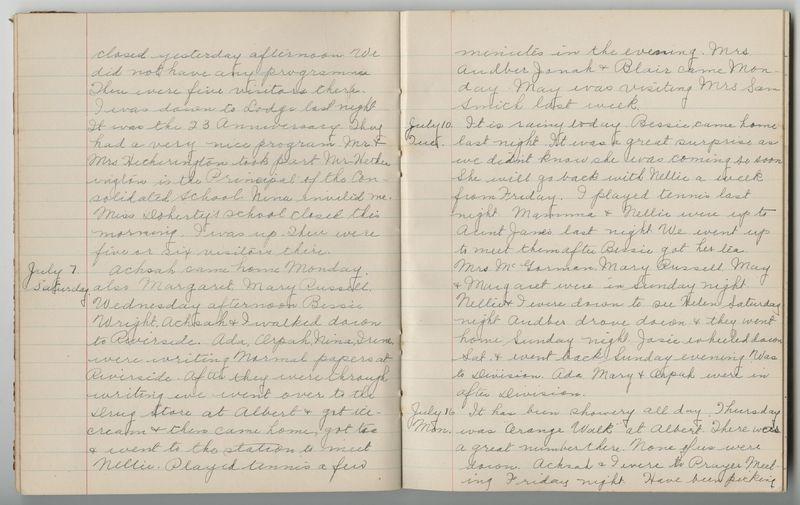 closed yesterday afternoon. We
did not have any programme
There were five visitors there.
I was down to Lodge last night
It was the 23 Anniversary. They
had a very nice program. Mr. &
Mrs Hetherington took part Mr. Hether
ington is the Principal of the Con-
solidated School. Nina invited me.
Miss Doherty's school closed this
morning. I was up. There were
five or six visitors there.
July 7. Achsah came home Monday.
Saturday also Margaret Mary Russell.
Wednesday afternoon Bessie
Wright, Achsah & I walked down
to Riverside. Ada, Arpah, Nina, Irene,
were writing Normal papers at
Riverside. After they were through
writing we went over to the
Drug Store at Albert & got ice-
cream & then came home, got tea
& went to the station to meet
Nellie. Played tennis a few
minutes in the evening. Mrs
Audber Jonah & Blair came Mon-
day. May was visiting Mrs Sam
Smith last week.
July 10. It is rainy today. Bessie came home
Tues. last night. It was a great surprise as
we didn't know she was coming so soon
She will go back with Nellie a week
from Friday. I played tennis last
night. Mamma & Nellie were up to
Aunt Jane's last night. We went up
to meet them after Bessie got her tea.
Mrs. McGorman, Mary Russell May
& Margaret were in Sunday night
Nellie & I were down to see Helen Saturday
night Audber drove down & they went
home Sunday night. Josie wheeled down
Sat. & went back Sunday evening. Was
to Division. Ada Mary & Arpah were in
after Division.
July 16. It has been showery all day. Thursday
Mon. was Orange Walk at Albert. There was
a great number there. None of us were
down. Achsah & I were to Prayer Meet-
ing Friday night. Have been picking